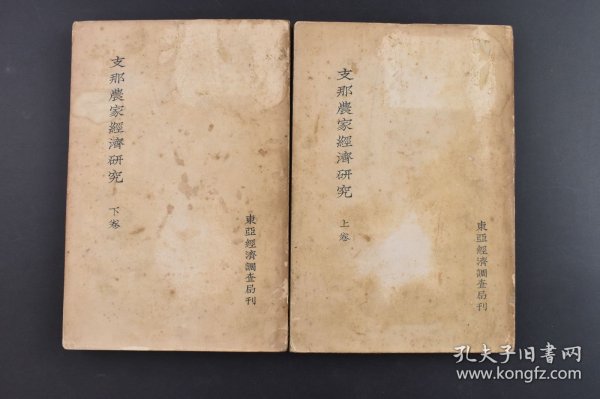 支那農家經濟研究
上卷
東亞經濟調查局刊
支那農家經濟研究
下卷
東亞經濟調查局刊
孔夫子旧书网
www.kongfz.com